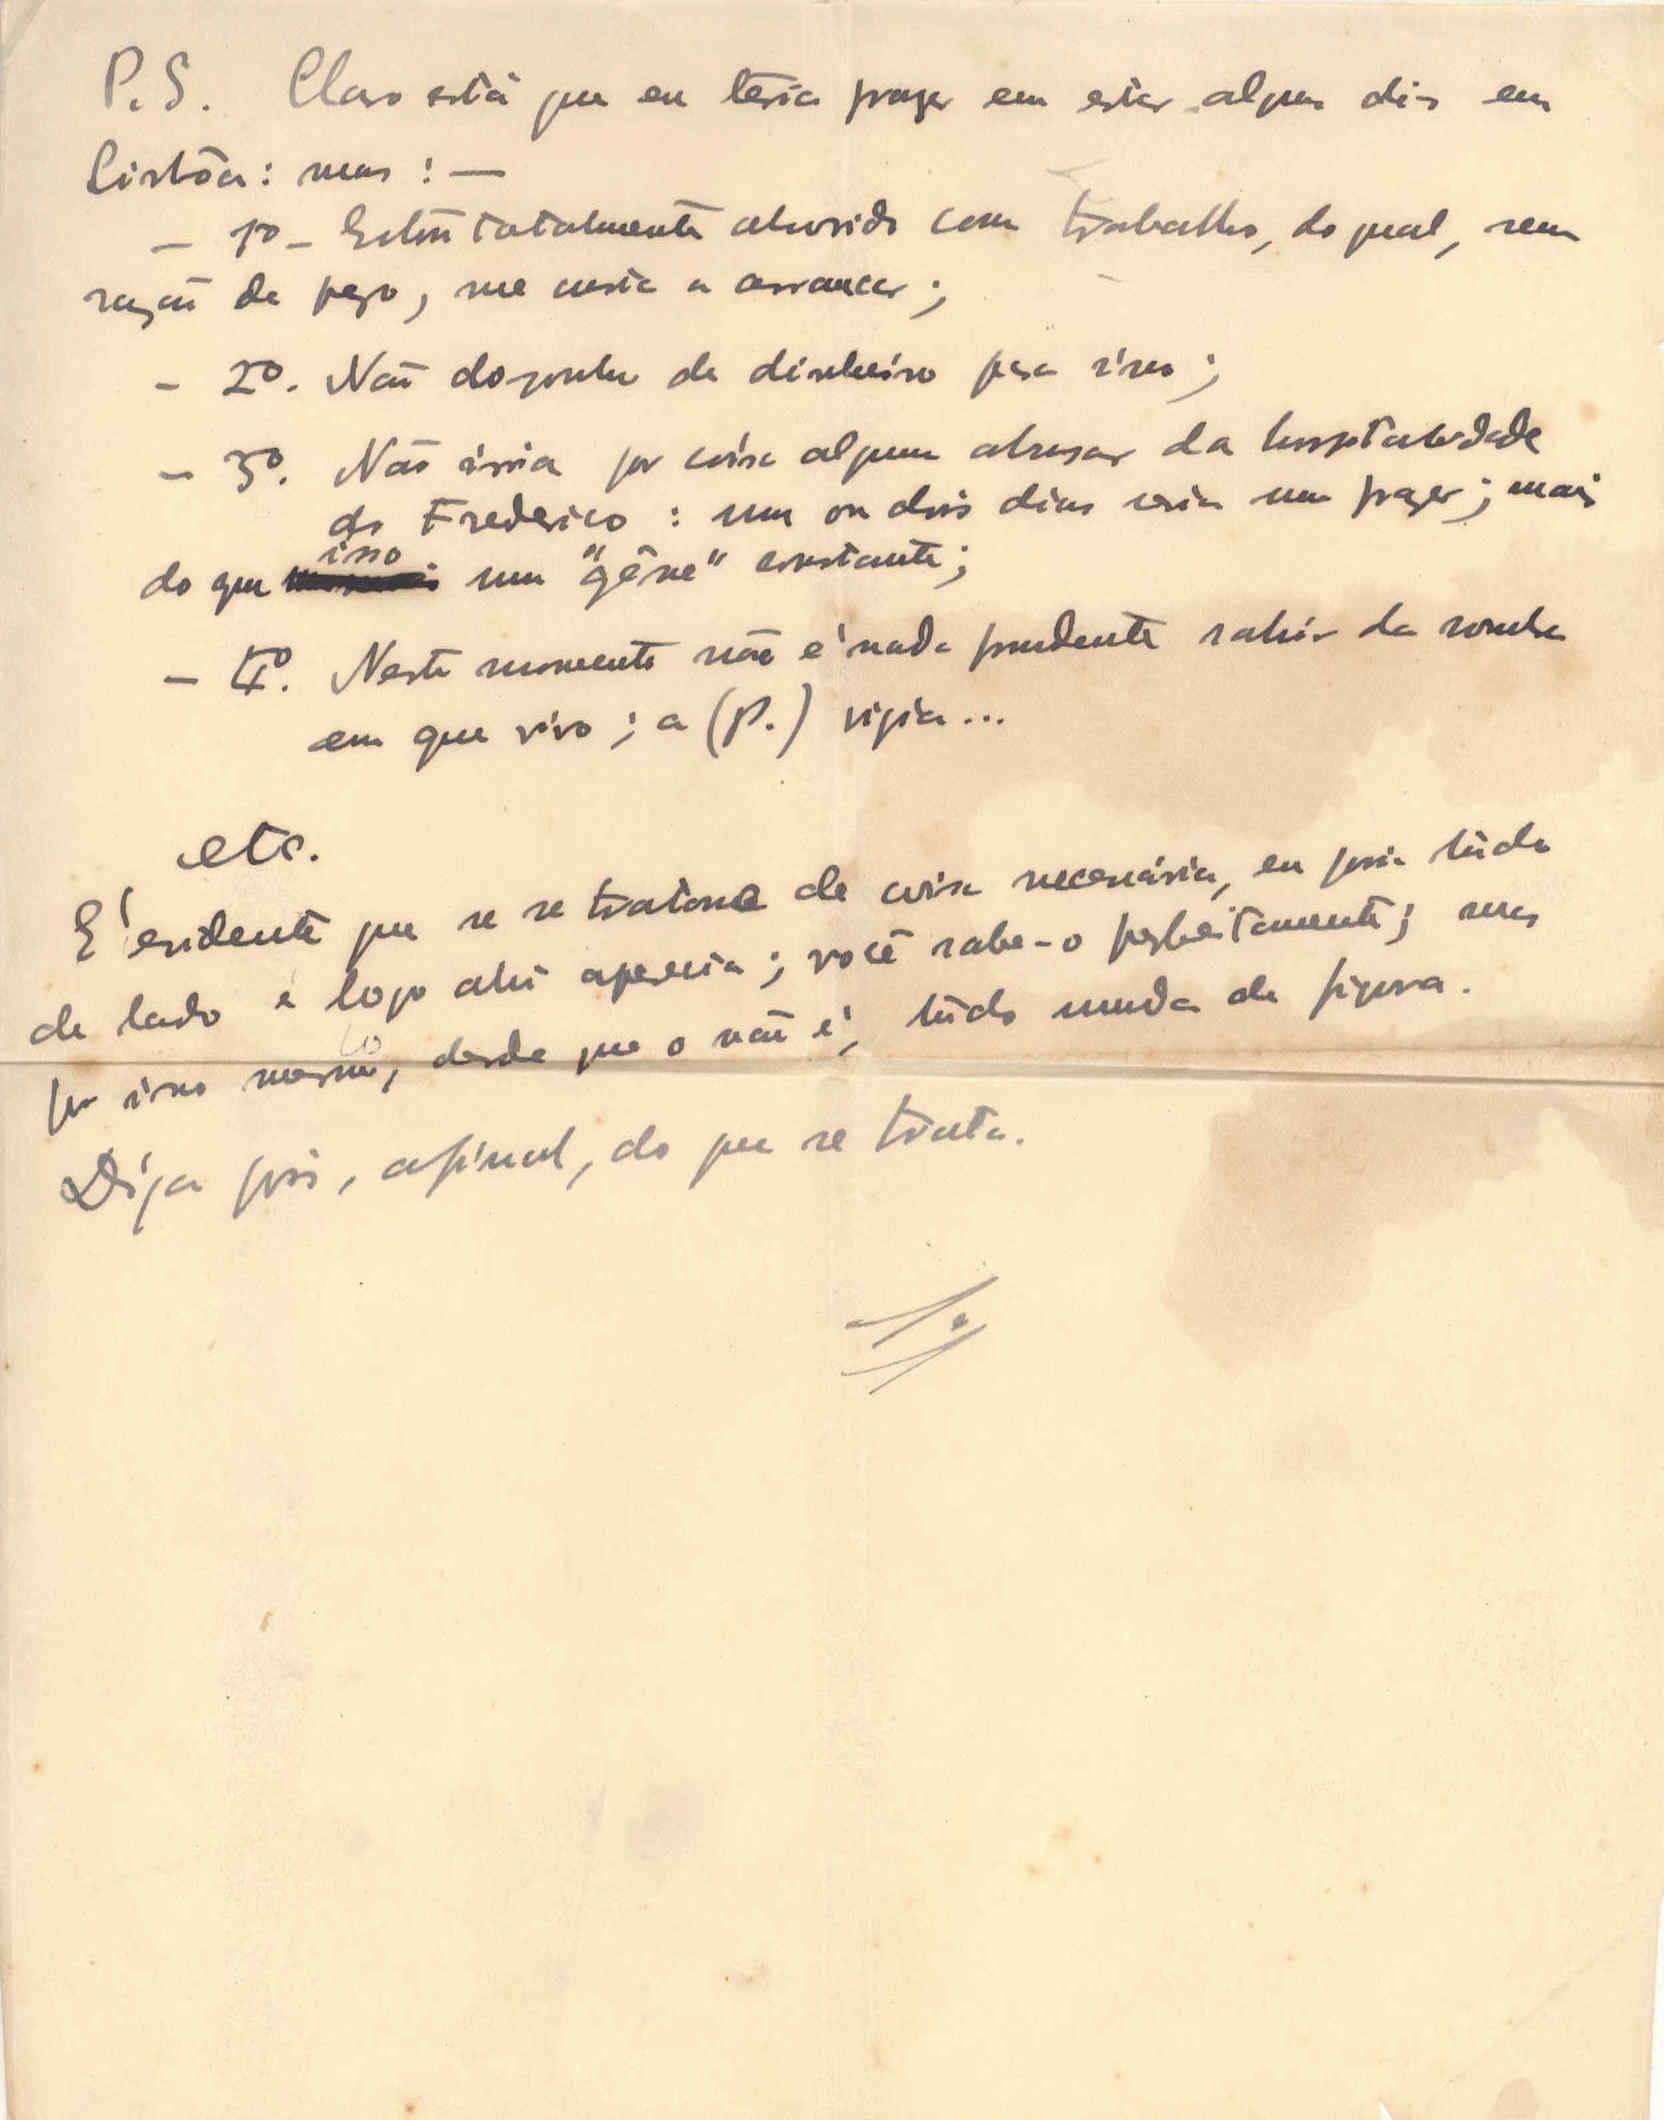 P.S. Claro está que eu teria prazer em estar alguns dias em
Lisbôa: mas: —
— 1º — Estou totalmente absorvido com trabalho, do qual, sem
razão de pêso, me custa a arrancar;
— 2º. Não disponho de dinheiro para isso;
— 3º. Não iria por coisa alguma abusar da hospitalidade
do Frederico: um ou dois dias seria um prazer; mais
do que isso um "gêne" constante;
— 4º. Neste momento não é nada prudente sahir da sombra
em que vivo; a (P.) vigia...
etc.
E' evidente que se se tratasse de coisa necessária, eu poria tudo
de lado e logo ahi aparecia; você sabe-o perfeitamente; mas
por isso mesmo, desde que o não é, tudo muda de figura.
Diga pois, afinal, do que se trata.